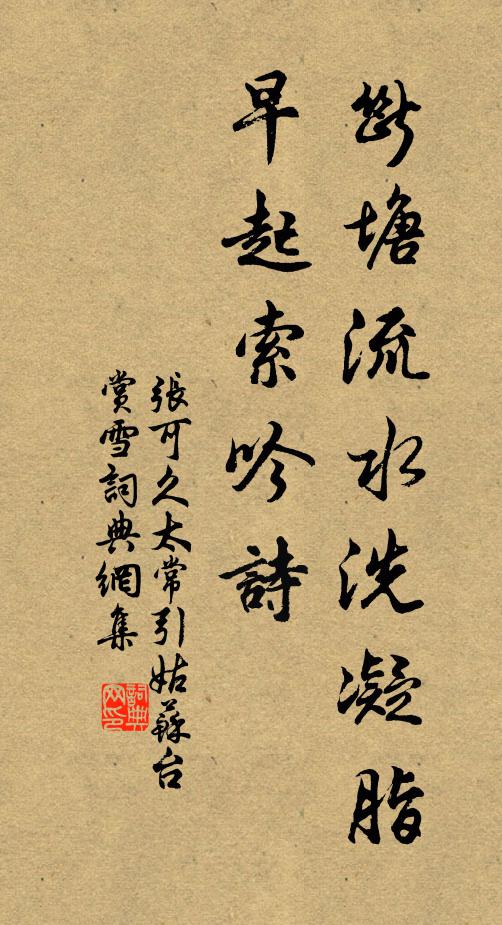 斷塘流水洗凝脂
早起索吟詩
張可久太常引姑蘇台
賞雪詞典網集
詞典
网印